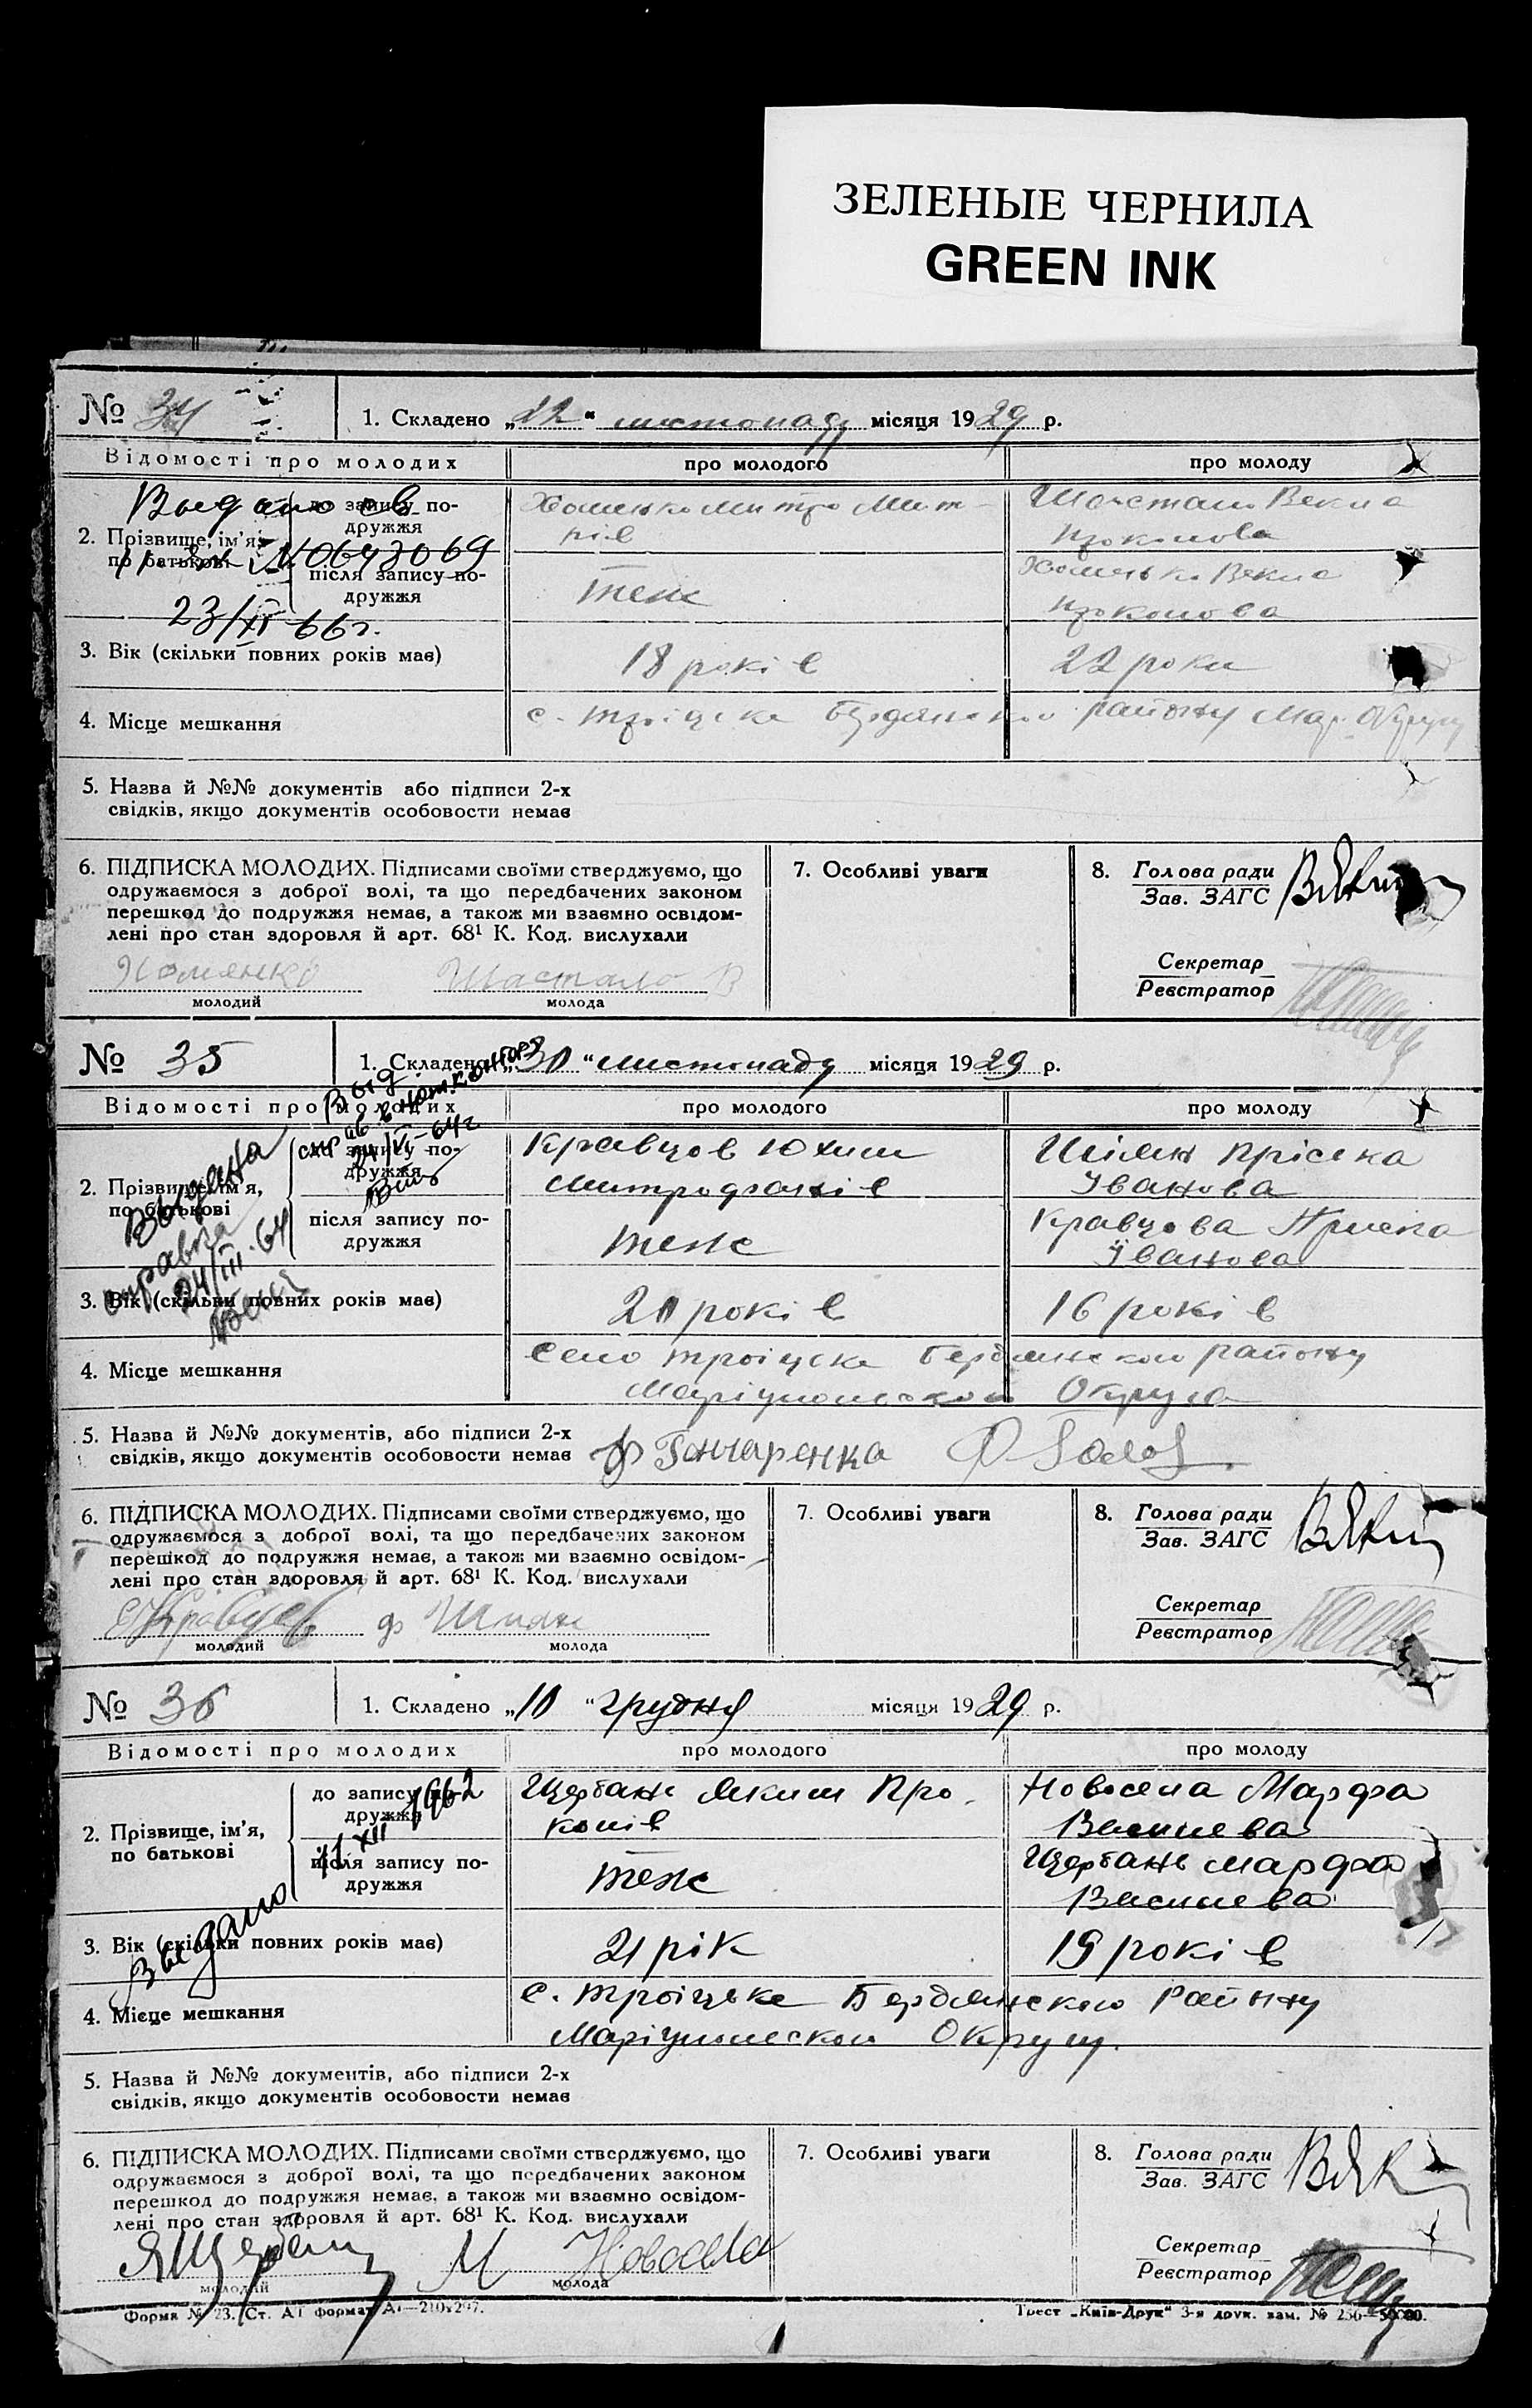 ЗЕЛЕНЫЕ ЧЕРНИЛА
GREEN INK
№ 34
1. Складено „22“ листопаду місяця 1929 р.
Відомості про молодих
про молодого
про молоду
Выдано св
№ 0643069
23/XI-66 г.
2. Прізвище, ім'я, по батькові
до запису подружжя
Хоменко Митро Мит-
рів
Шастало Векла
Прокопова
після запису по-
дружжя
теж
Хоменько Векла
Прокопова
3. Вік (скільки повних років має)
18 років
22 роки
4. Місце мешкання
с. Троіцьке Бердянского району Мар. Округу
5. Назва й №№ документів або підписи 2-х
свідків, якщо документів особовости немає
6. ПІДПИСКА МОЛОДИХ. Підписами своїми стверджуємо, що
одружаємося з доброї волі, та що передбачених законом
перешкод до подружжя немає, а також ми взаємно освідом-
лені про стан здоровля й арт. 68¹ К. Код. вислухали
Хоменко
Шастало В
молодий
молода
7. Особливі уваги
8. Голова ради
Зав. ЗАГС
Секретар
Реєстратор
№ 35
1. Складено „30“ листопаду місяця 1929 р.
Відомості про молодих
про молодого
про молоду
Выдана
справка
24/III-64
2. Прізвище, ім'я,
по батькові
до запису по-
дружжя
Кравцов Юхим
Митрофанів
Шіян Пріська
Іванова
після запису по-
дружжя
теж
Кравцова Приска
Іванова
3. Вік (скільки повних років має)
20 років
16 років
4. Місце мешкання
Село Троіцьке Бердянского району
Маріупольского Округа
5. Назва й №№ документів, або підписи 2-х
свідків, якщо документів особовости немає
Ф Гончаренка
6. ПІДПИСКА МОЛОДИХ. Підписами своїми стверджуємо, що
одружаємося з доброї волі, та що передбачених законом
перешкод до подружжя немає, а також ми взаємно освідом-
лені про стан здоровля й арт. 68¹ К. Код. вислухали
молодий
молода
7. Особливі уваги
8. Голова ради
Зав. ЗАГС
Секретар
Реєстратор
№ 36
1. Складено „10“ грудня місяця 1929 р.
Відомості про молодих
про молодого
про молоду
Выдано
XII 1962
2. Прізвище, ім'я,
по батькові
до запису по-
дружжя
Щербань Яким Про-
копів
Новосела Марфа
Васильева
після запису по-
дружжя
теж
Щербань Марфа
Васильева
3. Вік (скільки повних років має)
21 рік
19 років
4. Місце мешкання
с. Троіцьке Бердянского Району
Маріупольского Округу.
5. Назва й №№ документів, або підписи 2-х
свідків, якщо документів особовости немає
6. ПІДПИСКА МОЛОДИХ. Підписами своїми стверджуємо, що
одружаємося з доброї волі, та що передбачених законом
перешкод до подружжя немає, а також ми взаємно освідом-
лені про стан здоровля й арт. 68¹ К. Код. вислухали
Я Щербань
М Новосела
молодий
молода
7. Особливі уваги
8. Голова ради
Зав. ЗАГС
Секретар
Реєстратор
Форма № 23. Ст. А1 формат А4—210x297.
Трест „Київ-Друк“ 3-я друк. зам. № 256—50000.